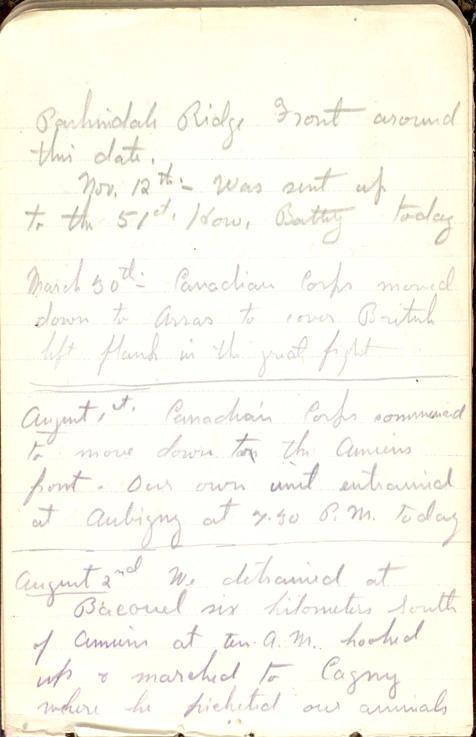 Pashindale Ridge Front around
this date.
Nov. 12th:- Was sent up
to the 51st. How. Battery today
March 30th:- Canadian Corps moved
down to Arras to cover British
left flank in the great fight
August 1st. Canadian Corps commenced
to move down to the Amiens
front. Our own unit entrained
at Aubigny at 7.30 P.M. today
August 2nd We detrained at
Bacouel six kilometers south
of Amiens at ten A.M. hooked
up & marched to Cagny
where he picketed our animals